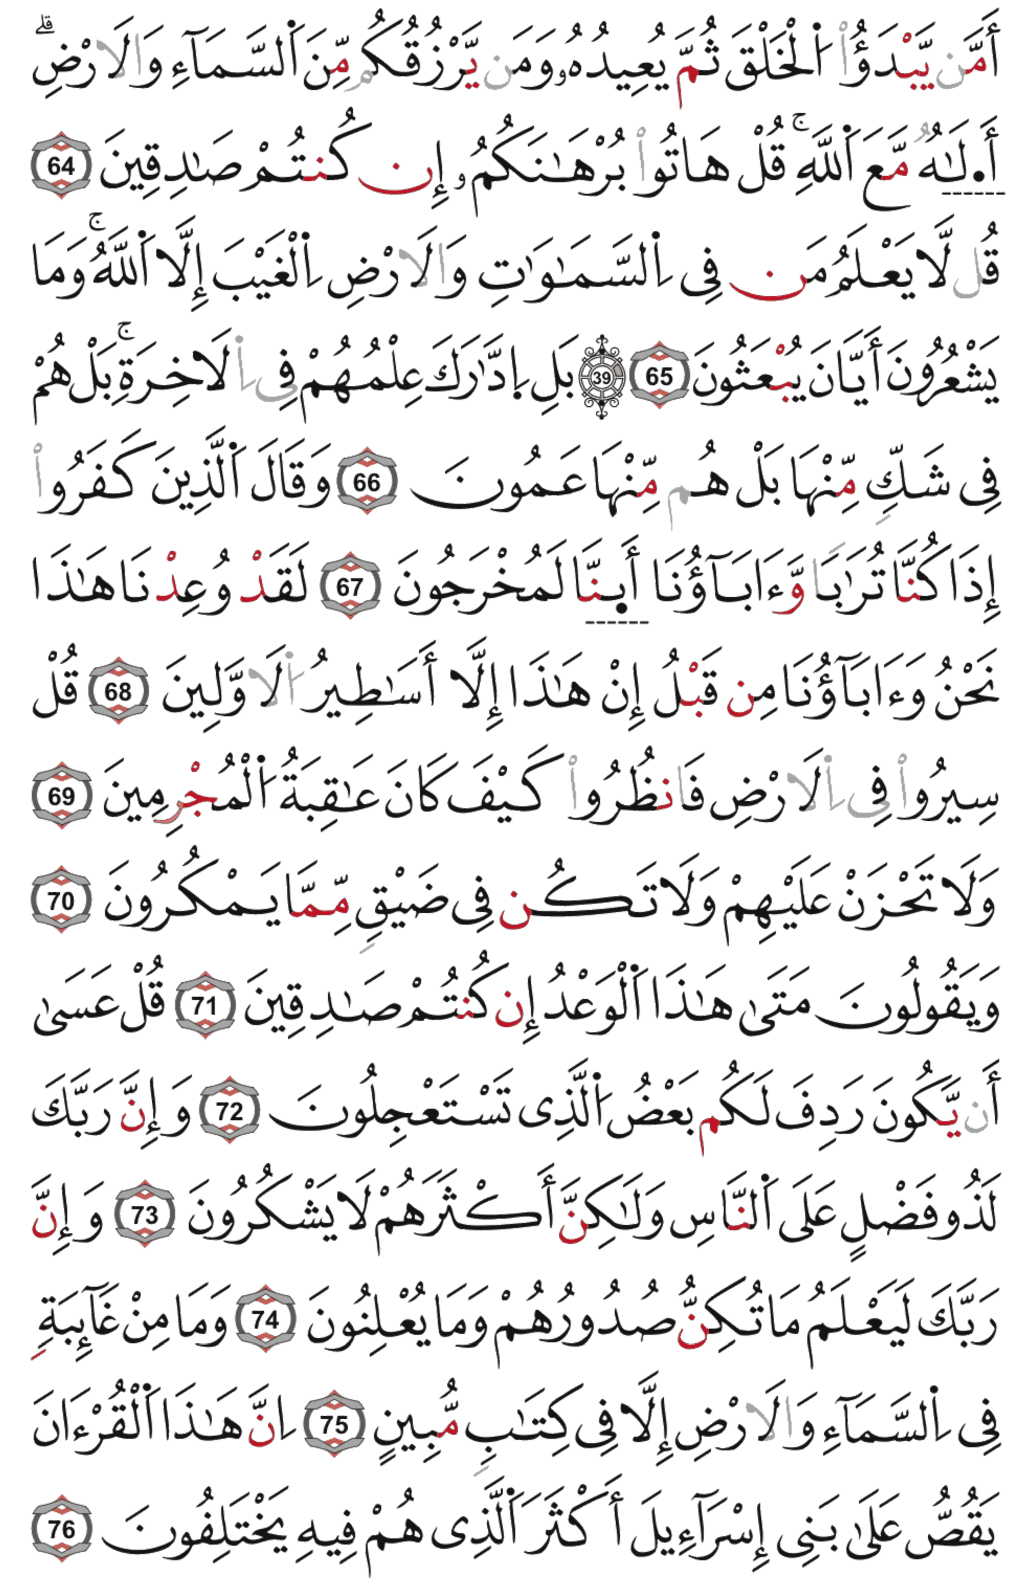 أَمَّنْ يَّبْدَؤُاْ اُ۬لْخَلْقَ ثُمَّ يُعِيدُهُۥ وَمَنْ يَّرْزُقُكُم مِّنَ اَ۬لسَّمَآءِ وَالَارْضِۗ
أَ.لَٰهٞ مَّعَ اَ۬للَّهِۚ قُلْ هَاتُواْ بُرْهَٰنَكُمُۥٓ إِن كُنتُمْ صَٰدِقِينَ 64
قُل لَّا يَعْلَمُ مَن فِى اِ۬لسَّمَٰوَٰتِ وَالَارْضِ اِ۬لْغَيْبَ إِلَّا اَ۬للَّهُۚ وَمَا
يَشْعُرُونَ أَيَّانَ يُبْعَثُونَ 65 39 بَلِ اِ۪دَّٰرَكَ عِلْمُهُمْ فِى اِ۬لَاخِرَةِۚ بَلْ هُمْ
فِى شَكّٖ مِّنْهَا بَلْ هُم مِّنْهَا عَمُونَ 66 وَقَالَ اَ۬لَّذِينَ كَفَرُواْ
إِذَا كُنَّا تُرَٰباٗ وَّءَابَآؤُنَا أَ.ينَّا لَمُخْرَجُونَ 67 لَقَدْ وُعِدْنَا هَٰذَا
نَحْنُ وَءَابَآؤُنَا مِن قَبْلُ إِنْ هَٰذَا إِلَّا أَسَٰطِيرُ اُ۬لَاوَّلِينَ 68 قُلْ
سِيرُواْ فِى اِ۬لَارْضِ فَانظُرُواْ كَيْفَ كَانَ عَٰقِبَةُ اُ۬لْمُجْرِمِينَ 69
وَلَا تَحْزَنْ عَلَيْهِمْ وَلَا تَكُن فِى ضَيْقٖ مِّمَّا يَمْكُرُونَ 70
وَيَقُولُونَ مَتَىٰ هَٰذَا اَ۬لْوَعْدُ إِن كُنتُمْ صَٰدِقِينَ 71 قُلْ عَسَىٰ
أَنْ يَّكُونَ رَدِفَ لَكُم بَعْضُ اُ۬لَّذِى تَسْتَعْجِلُونَ 72 وَإِنَّ رَبَّكَ
لَذُو فَضْلٍ عَلَى اَ۬لنَّاسِ وَلَٰكِنَّ أَكْثَرَهُمْ لَا يَشْكُرُونَ 73 وَإِنَّ
رَبَّكَ لَيَعْلَمُ مَا تُكِنُّ صُدُورُهُمْ وَمَا يُعْلِنُونَ 74 وَمَا مِنْ غَآئِبَةٖ
فِى اِ۬لسَّمَآءِ وَالَارْضِ إِلَّا فِى كِتَٰبٖ مُّبِينٍ 75 اِنَّ هَٰذَا اَ۬لْقُرْءَانَ
يَقُصُّ عَلَىٰ بَنِى إِسْرَآءِيلَ أَكْثَرَ اَ۬لَّذِى هُمْ فِيهِ يَخْتَلِفُونَ 76